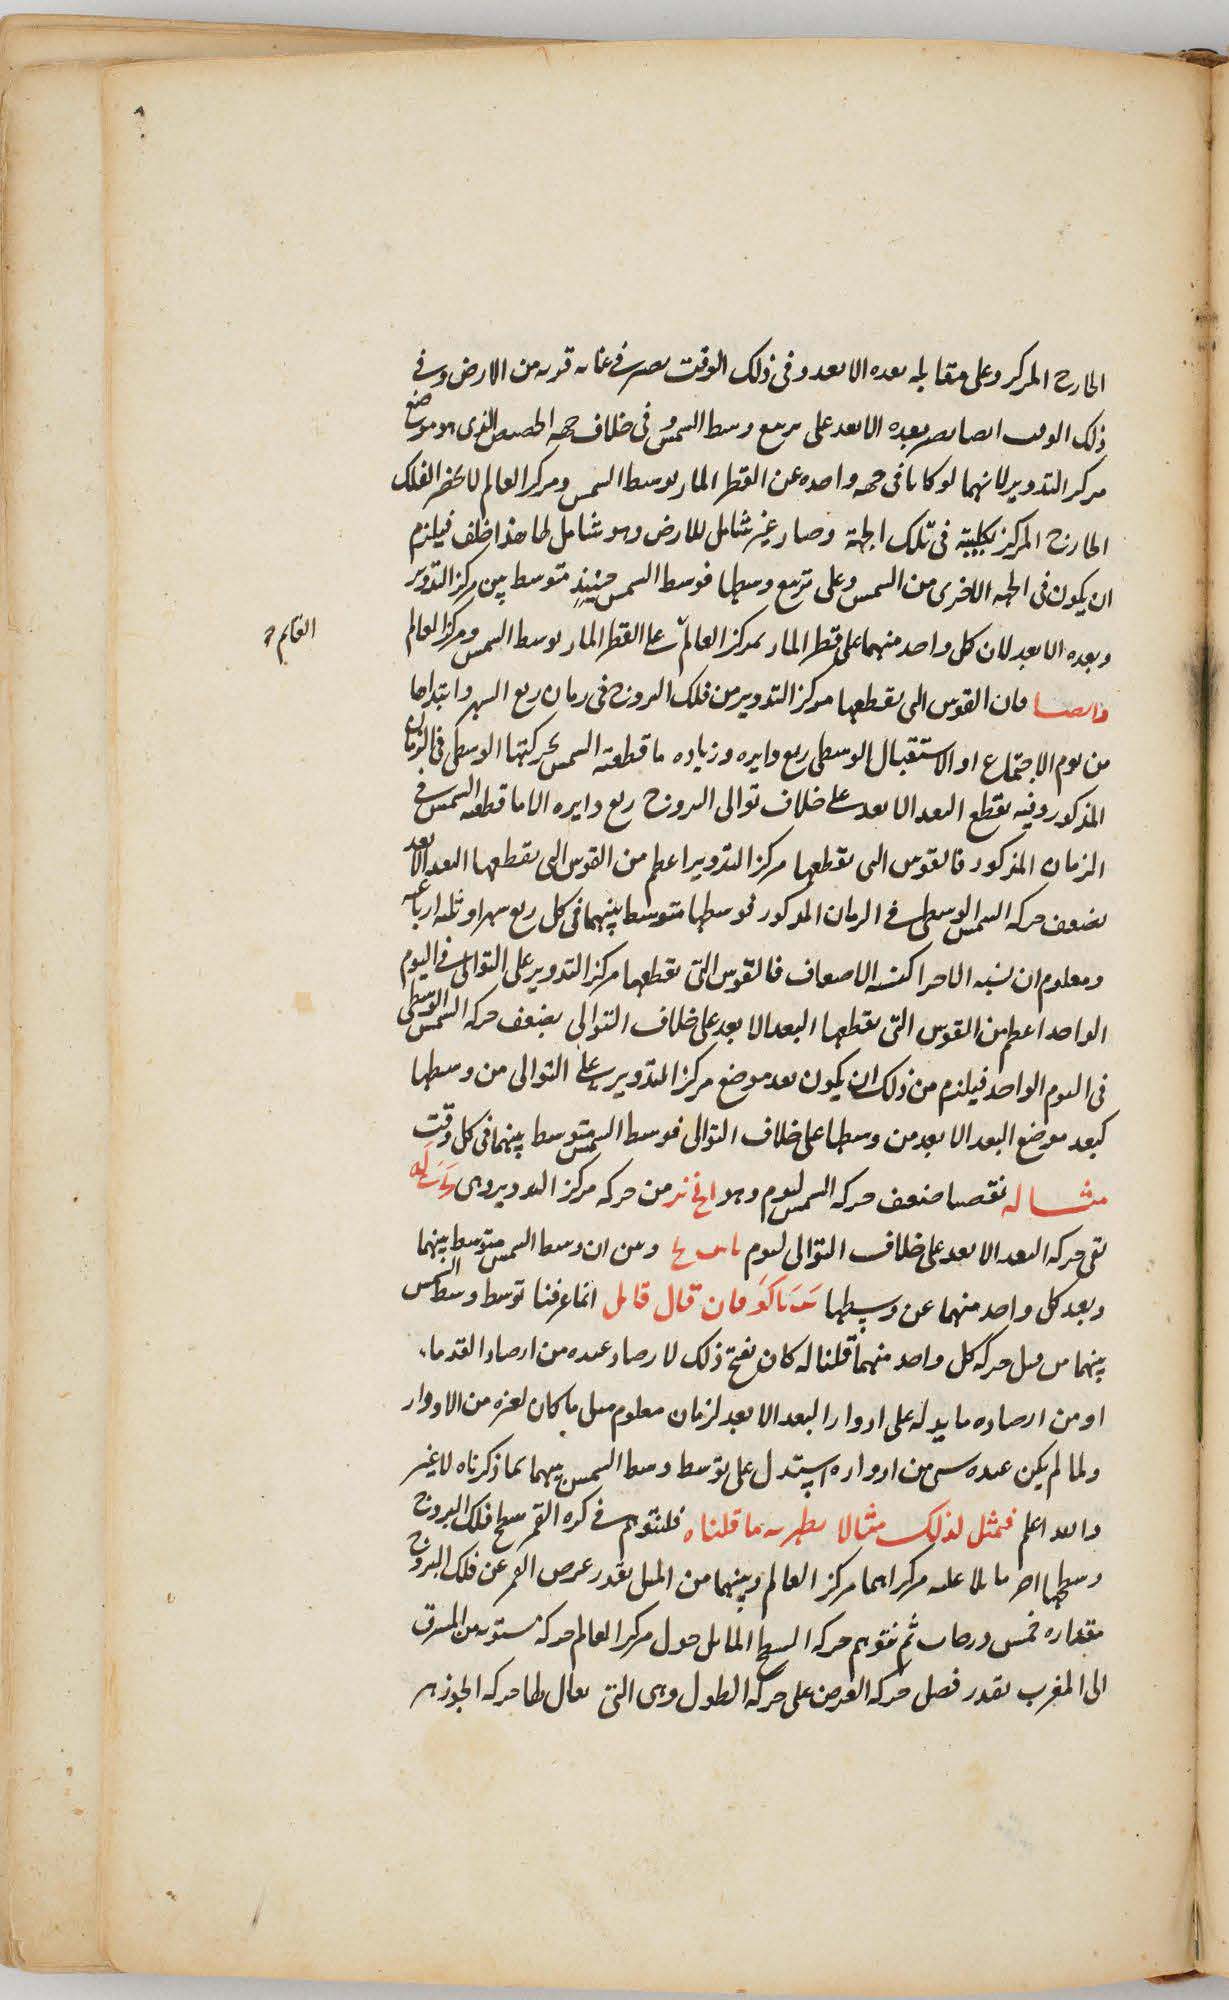 ٨
الخارج المركز وعلى مقابله بعده الابعد وفى ذلك الوقت يصير فى غايه قربه من الارض وفى
ذلك الوقت ايضا يصير بعده الابعد على تربيع وسط الشمس وفى خلاف جهه الحضيض الذى هو موضع
مركز التدوير لانهما لو كانا فى جهه واحده عن القطر المار بوسط الشمس ومركز العالم لانحصر الفلك
الخارج المركز بكليته فى تلك الجهة وصار غير شامل للارض وهو شامل لها هذا خلف فيلزم
ان يكون فى الجهه الاخرى من الشمس وعلى تربيع وسطها فوسط الشمس حينئذ متوسط بين مركز التدوير
وبعده الابعد لان كل واحد منهما على قطر المار بمركز العالم على القطر المار بوسط الشمس ومركز العالم
القايم
وايضا فان القوس التى يقطعها مركز التدوير من فلك البروج فى زمان ربع الشهر وابتداها
من يوم الاجتماع او الاستقبال الوسطى ربع دايره وزياده ما قطعته الشمس بحركتها الوسطى فى الزمان
المذكور وفيه يقطع البعد الابعد على خلاف توالى البروج ربع دايره الا ما قطعته الشمس فى
الزمان المذكور فالقوس التى يقطعها مركز التدوير اعظم من القوس التى يقطعها البعد الابعد
بضعف حركه الشمس الوسطى فى الزمان المذكور فوسطها متوسط بينهما فى كل ربع شهر او ثلثه ارباعه
ومعلوم ان نسبه الاجزا كنسبه الاضعاف فالقوس التى يقطعها مركز التدوير على التوالى فى اليوم
الواحد اعظم من القوس التى يقطعها البعد الابعد على خلاف التوالى بضعف حركه الشمس الوسطى
فى اليوم الواحد فيلزم من ذلك ان يكون بعد موضع مركز التدوير على التوالى من وسطها
كبعد موضع البعد الابعد من وسطها على خلاف التوالى فوسط الشمس متوسط بينهما فى كل وقت
مثاله نقصنا ضعف حركه الشمس ليوم وهو من حركه مركز التدوير وهى
بقى حركه البعد الابعد على خلاف التوالى ليوم وبين ان وسط الشمس متوسط بينهما
وبعد كل واحد منهما عن وسطها فان قال قايل انما عرفنا توسط وسط الشمس
بينهما من قبل حركة كل واحد منهما قلنا له كان يفتح ذلك لارصاد عنده من ارصاد القدماء
او من ارصاده ما يدله على ادوار البعد الابعد لزمان معلوم مثل ما كان لغيره من الادوار
ولما لم يكن عنده شى من ادواره استدل على توسط وسط الشمس بينهما بما ذكرناه لا غير
والله اعلم فمثل لذلك مثالا يظهر به ما قلناه فلنتوهم فى كره القمر سطح فلك البروج
وسطحا اخر مايلا عليه مركزاهما مركز العالم وبينهما من الميل بقدر عرض القمر عن فلك البروج
مقداره خمس درجات ثم نتوهم حركه السطح المايل حول مركز العالم حركة مستويه من المشرق
الى المغرب بقدر فضل حركه العرض على حركه الطول وهى التى يقال لها حركه الجوزهر